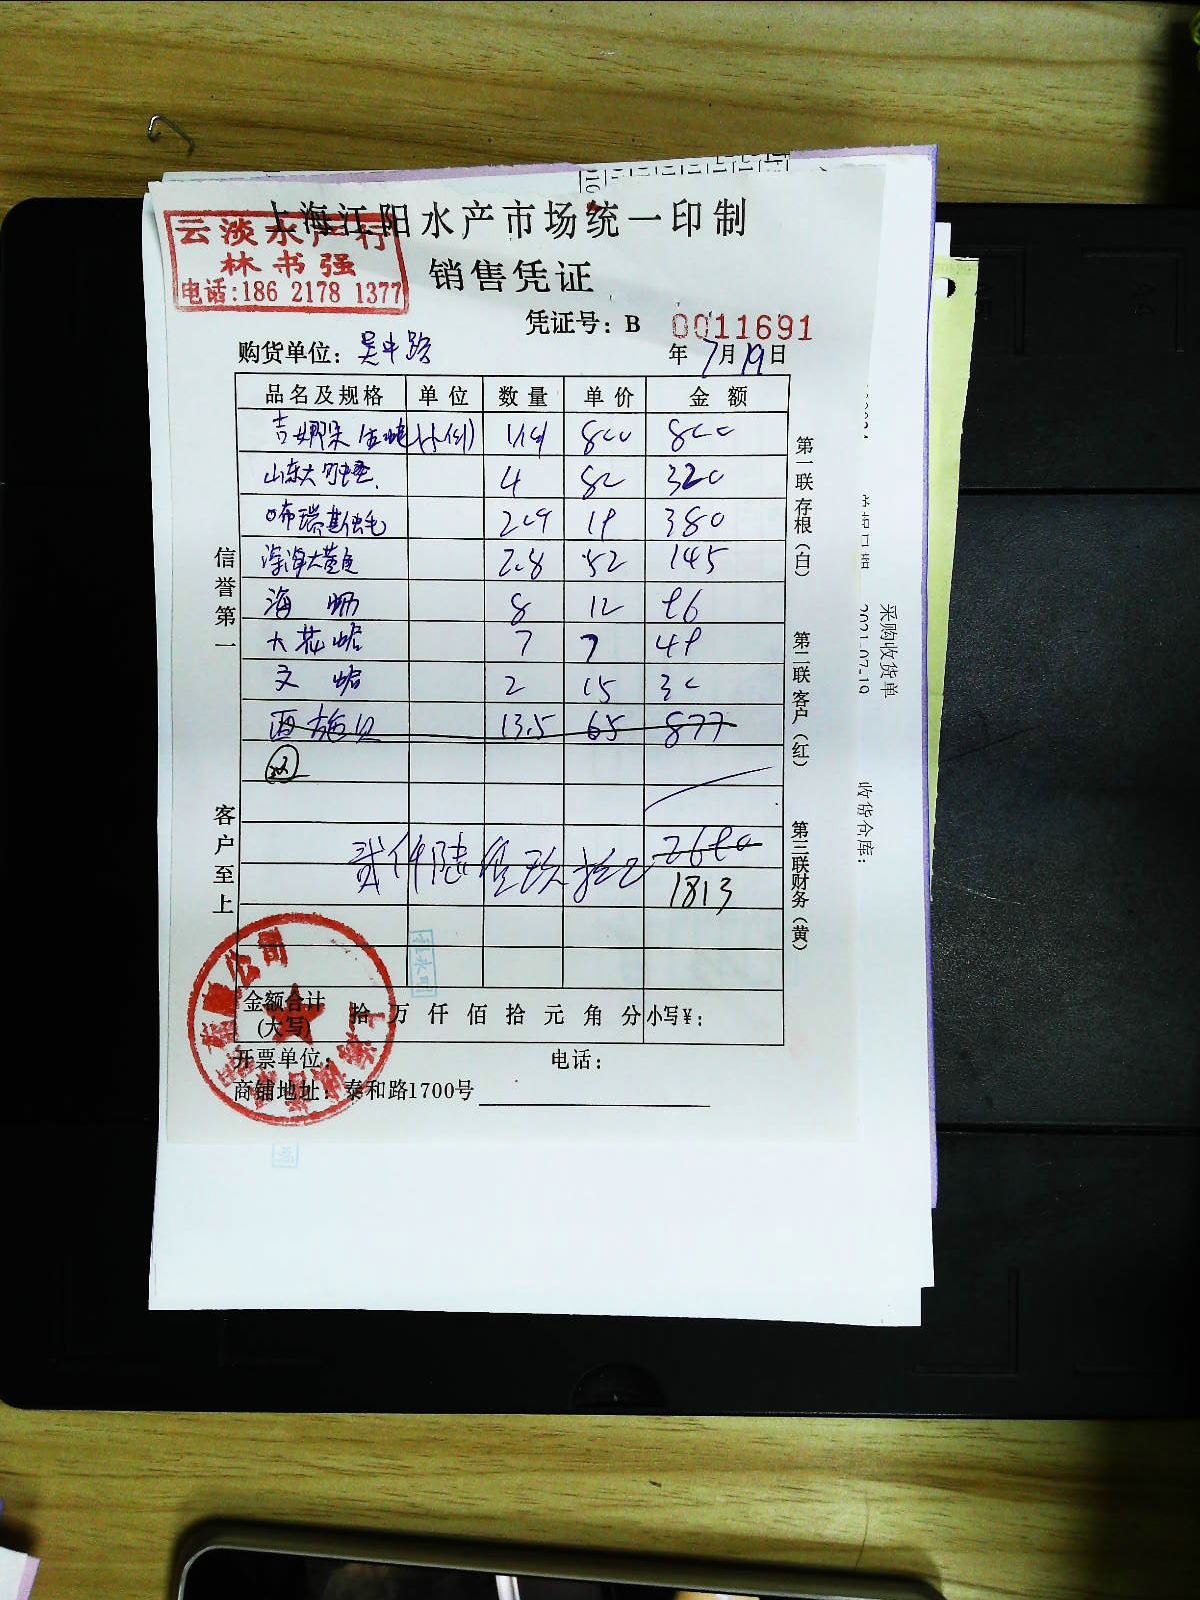 上海江阳水产市场统一印制
云淡水产行
林书强
电话:186 2178 1377
销售凭证
凭证号: B 0011691
购货单位: 吴中路
年 7月19日
品名及规格 单位 数量 单价 金额
800 800
山东大 4 80 320
布瑞基 209 19 380
深海大黄鱼 2.8 52 145
海蛎 8 12 96
大花蛤 7 7 49
文蛤 2 15 30
西施贝 13.5 65 877
2690
贰仟陆佰玖拾元
1813
信誉第一
客户至上
第一联存根(白)
第二联客户(红)
第三联财务(黄)
金额合计
(大写)
拾 万 仟 佰 拾 元 角 分 小写¥:
开票单位: 电话:
商铺地址: 泰和路1700号
采购收货单
2021-07-19
收货仓库: